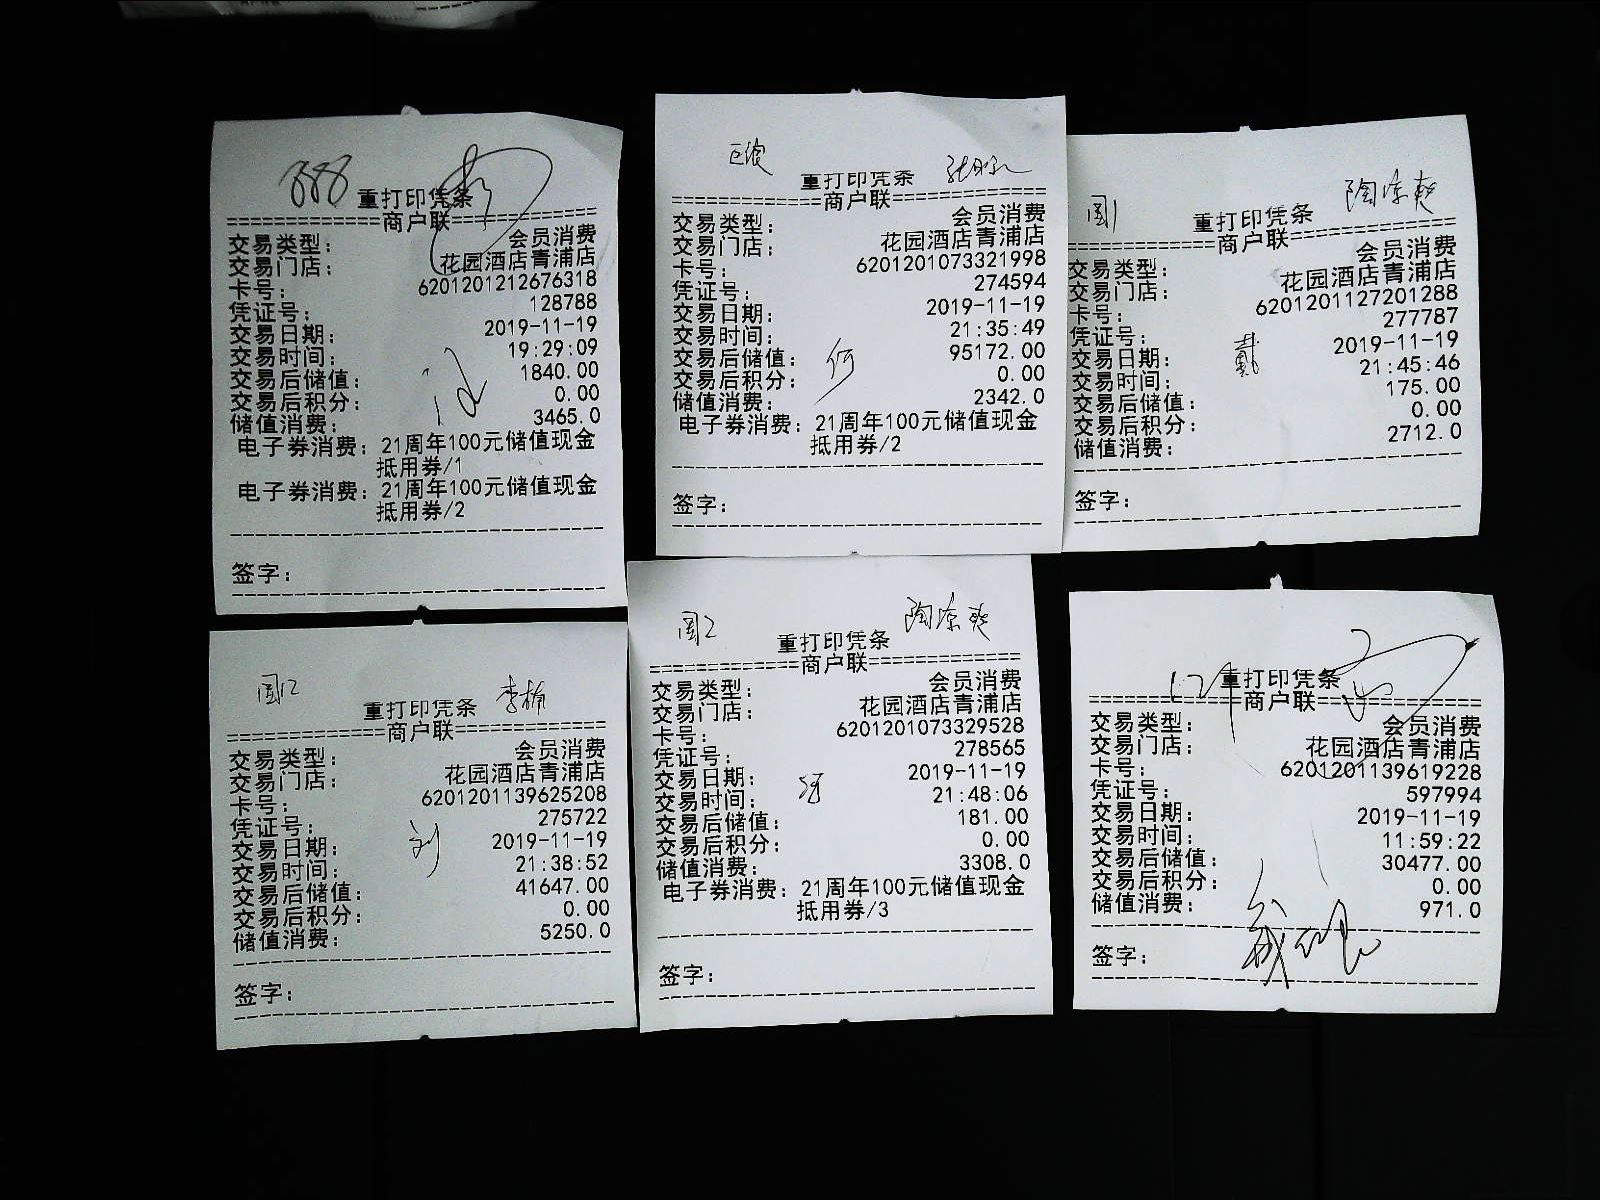 888
重打印凭条
==========商户联==========
交易类型： 会员消费
交易门店： 花园酒店青浦店
卡号： 6201201212676318
凭证号： 128788
交易日期： 2019-11-19
交易时间： 19:29:09
交易后储值： 1840.00
交易后积分： 0.00
储值消费： 3465.0
电子券消费：21周年100元储值现金
抵用券/1
电子券消费：21周年100元储值现金
抵用券/2
签字：
重打印凭条
==========商户联==========
交易类型： 会员消费
交易门店： 花园酒店青浦店
卡号： 6201201073321998
凭证号： 274594
交易日期： 2019-11-19
交易时间： 21:35:49
交易后储值： 95172.00
何
交易后积分： 0.00
储值消费： 2342.0
电子券消费：21周年100元储值现金
抵用券/2
签字：
陶凉爽
重打印凭条
==========商户联==========
交易类型： 会员消费
交易门店： 花园酒店青浦店
卡号： 6201201127201288
凭证号： 277787
交易日期： 2019-11-19
戴
交易时间： 21:45:46
交易后储值： 175.00
交易后积分： 0.00
储值消费： 2712.0
签字：
重打印凭条
==========商户联==========
交易类型： 会员消费
交易门店： 花园酒店青浦店
卡号： 6201201139625208
凭证号： 275722
刘
交易日期： 2019-11-19
交易时间： 21:38:52
交易后储值： 41647.00
交易后积分： 0.00
储值消费： 5250.0
签字：
陶凉爽
重打印凭条
==========商户联==========
交易类型： 会员消费
交易门店： 花园酒店青浦店
卡号： 6201201073329528
凭证号： 278565
交易日期： 2019-11-19
交易时间： 21:48:06
交易后储值： 181.00
交易后积分： 0.00
储值消费： 3308.0
电子券消费：21周年100元储值现金
抵用券/3
签字：
重打印凭条
==========商户联==========
交易类型： 会员消费
交易门店： 花园酒店青浦店
卡号： 6201201139619228
凭证号： 597994
交易日期： 2019-11-19
交易时间： 11:59:22
交易后储值： 30477.00
交易后积分： 0.00
储值消费： 971.0
签字：